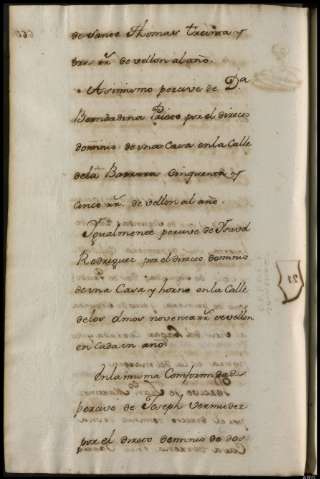 de Santo Thomas treinta y
tres rr. de vellon al año.
Asimismo percive de Da
Bernardina Passo por el direco
dominio de una Casa en la Calle
de la Barrera Cinquenta y
Cinco rr. de vellon al año.
Igualmente percive de Isavel
Rodriguez por el direco dominio
de una Casa y horno en la Calle
de los olmos noventa rr. de vellon
en cada un año
En la misma Comformidad
percive de Joseph Vermudez
por el direco dominio de dos